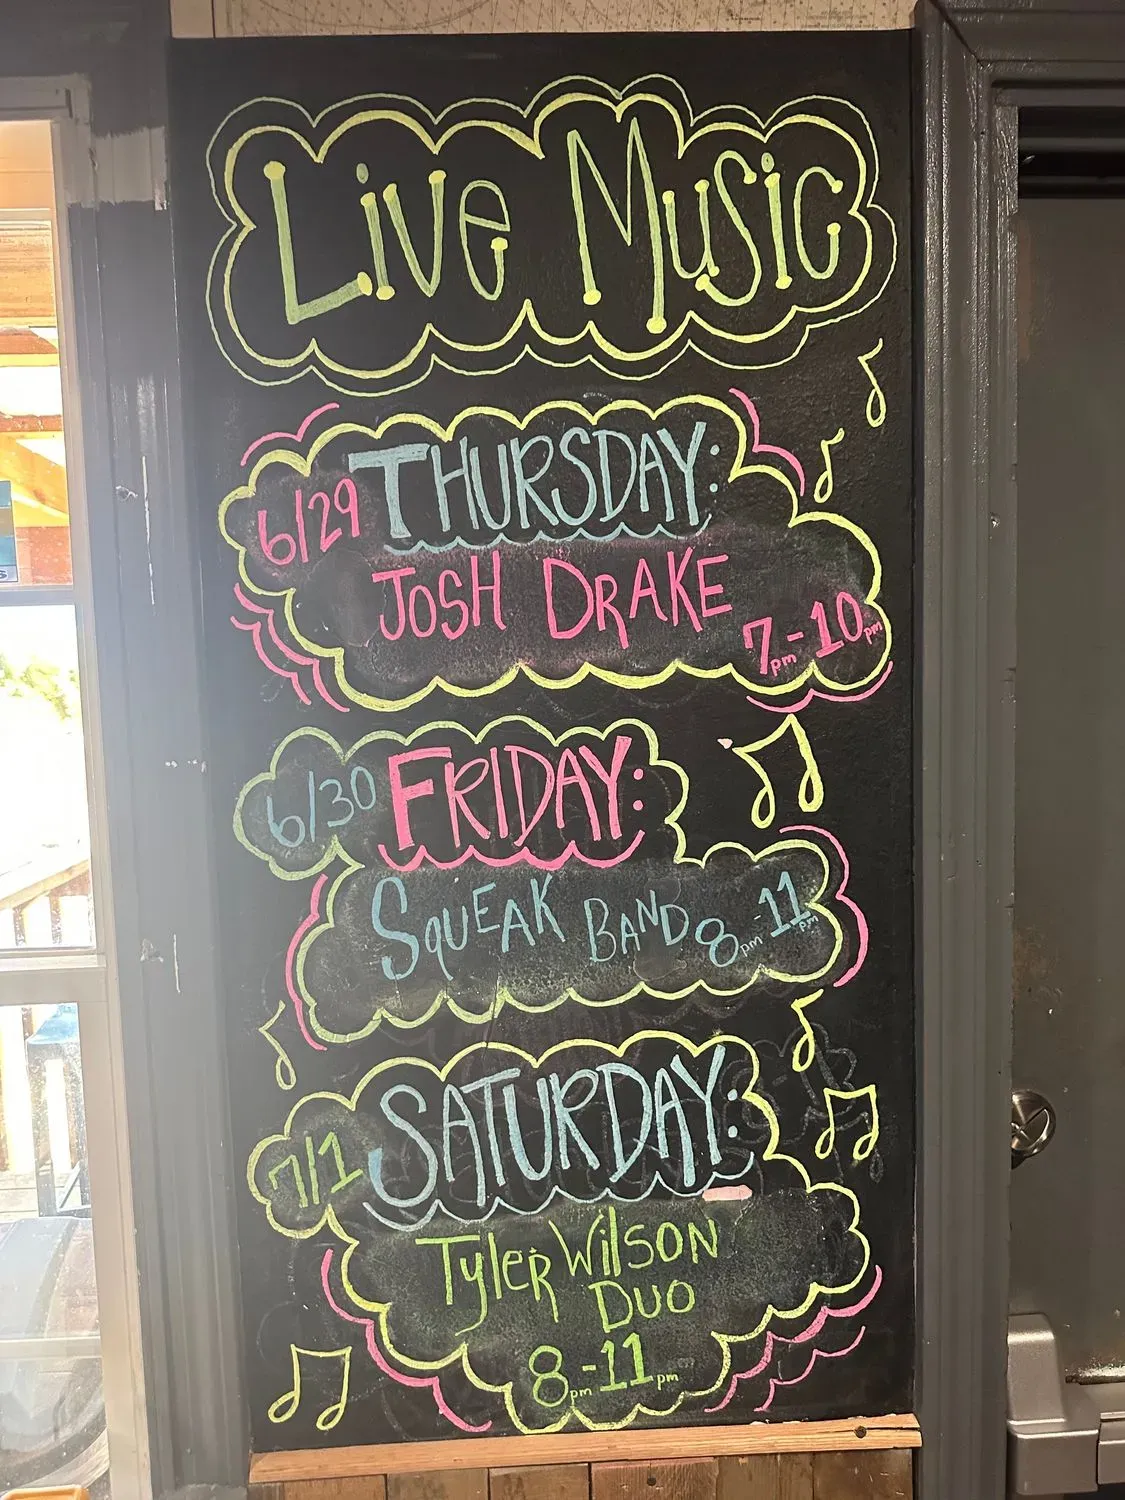 Live Music
6/29 THURSDAY:
JOSH DRAKE
7pm-10pm
6/30 FRIDAY:
SQUEAK BAND 8pm-11pm
7/1 SATURDAY:
Tyler Wilson
Duo
8pm-11pm